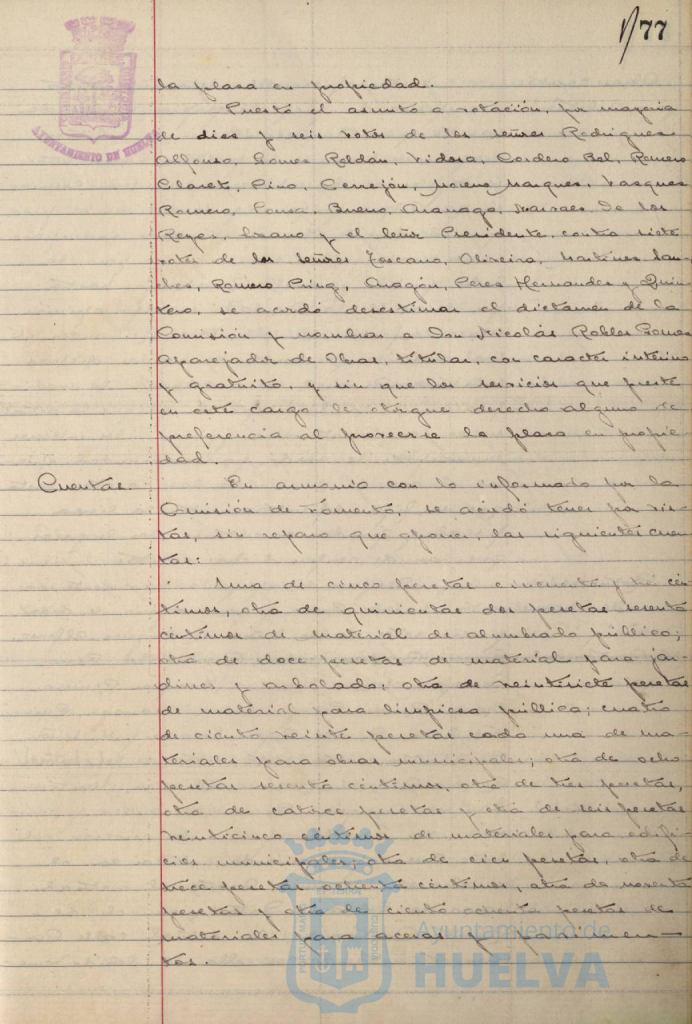 77
AYUNTAMIENTO DE HUELVA
la plaza en propiedad.
Puesto el asunto a votación, por mayoria
de dies y seis votos de los señores Rodrigues
Alfonso, Gomes Roldán, Vidosa, Cordero Bel, Romero
Claret, Pino, Cerrejón, Moreno Marques, Vasques
Romero, Ponsa, Bueno, Aranaga, Narvaes, De los
Reyes, Lsano y el Señor Presidente, contra siete
votos de los señores Toscano, Oliveira, Martines San-
ches, Romero Pring, Aragón, Peres Hernandes y Quin-
tero, se acordó desestimar el dictamen de la
Comisión y nombrar a Don Nicolás Robles Gomes
Aparejador de Obras, titular, con caracter interino
y gratuito, y sin que los servicios que preste
en este cargo le otorgue derecho alguno de
preferencia al proveerse la plasa en propie-
dad.
Cuentas.
En armonia con lo informado por la
Comisión de Fomento, se acordó tener por vis-
tas, sin reparo que oponer, las siguientes cuen-
tas:
Una de cinco pesetas cincuenta y seis cén-
timos, otra de quinientas dos pesetas sesenta
céntimos de material de alumbrado público;
otra de doce pesetas de material para jar-
dines y arbolado; otra de veintisiete pesetas
de material para limpiesa pública; cuatro
de ciento veinte pesetas cada una de ma-
teriales para obras municipales; otra de ocho
pesetas sesenta céntimos, otra de tres pesetas,
otra de catorce pesetas y otra de seis pesetas
veinticinco céntimos de materiales para edifi-
cios municipales; otra de cien pesetas, otra de
trece pesetas ochenta céntimos, otra de noventa
pesetas y otra de ciento ochenta pesetas de
materiales para aceras y pavimen-
tos.
Ayuntamiento de
HUELVA